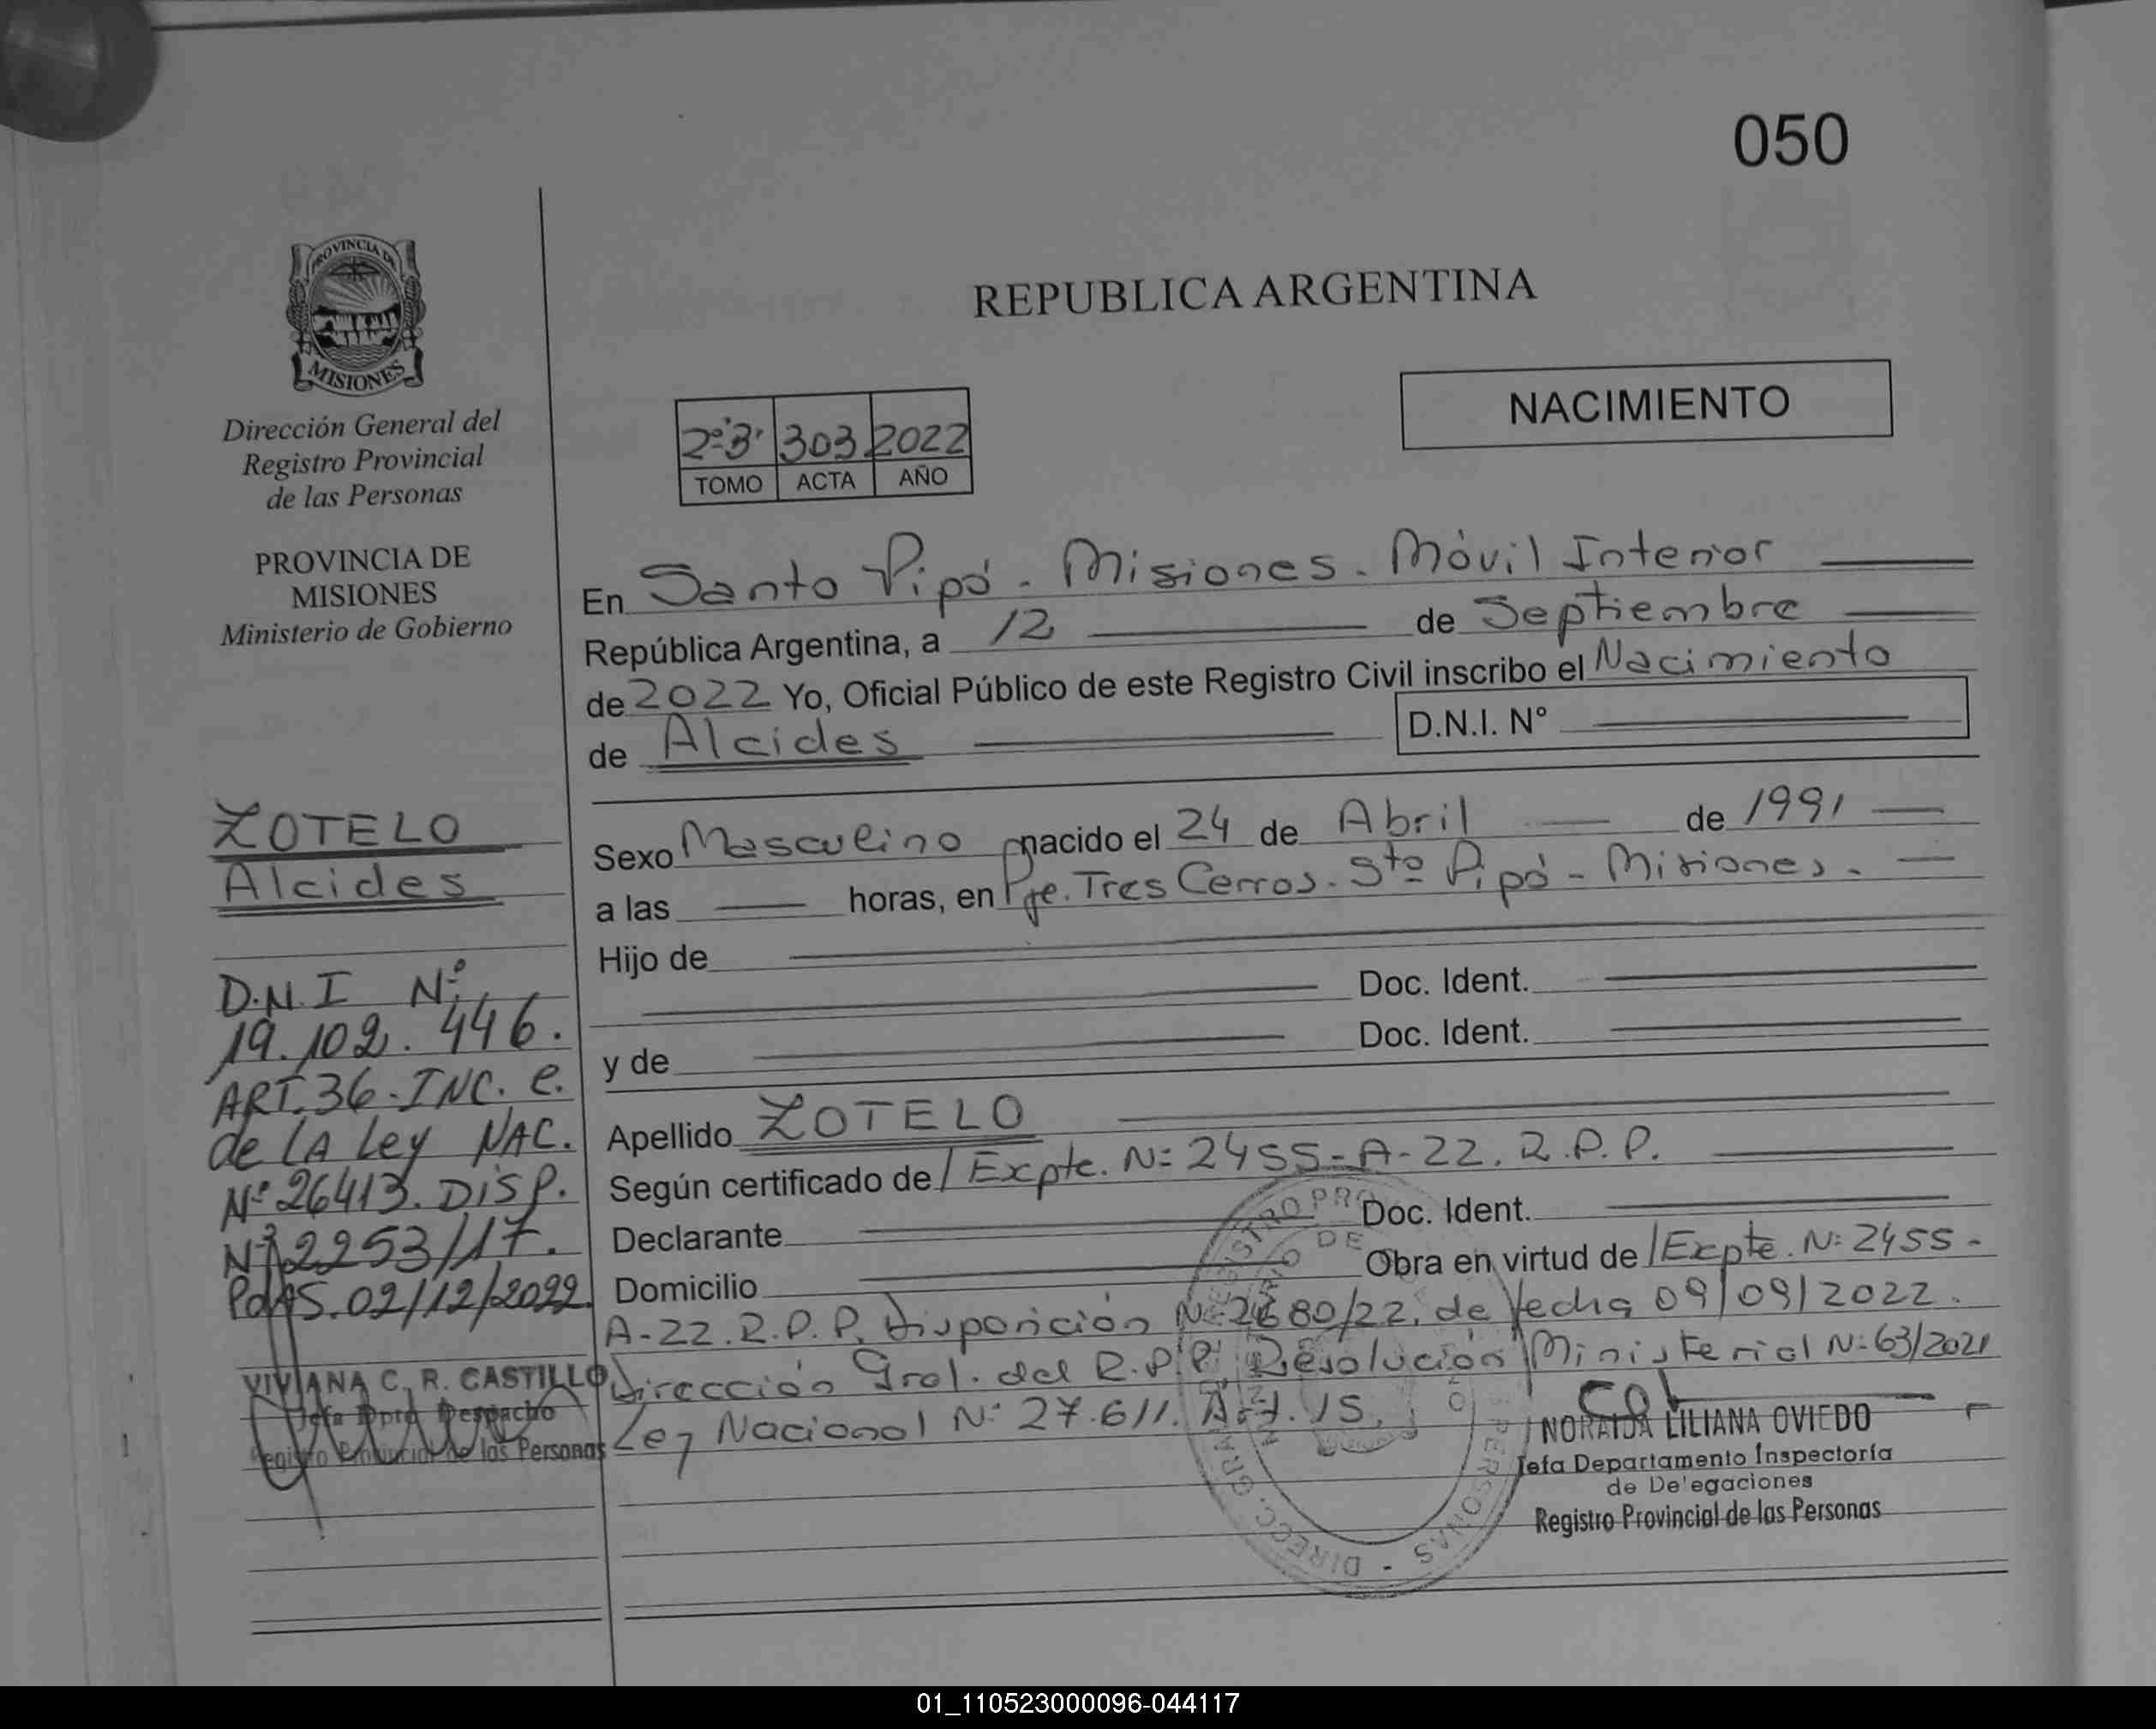 050
PROVINCIA DE
MISIONES
Dirección General del
Registro Provincial
de las Personas
PROVINCIA DE
MISIONES
Ministerio de Gobierno
ZOTELO
Alcides
D.N.I Nº
19.102.446.
ART.36-INC. e.
de LA Ley NAC.
Nº 26413. DISP.
Nº 2253/17.
Pdas. 02/12/2022
VIVIANA C. R. CASTILLO
Jefa Dpto Despacho
Registro Provincial de las Personas
REPUBLICA ARGENTINA
NACIMIENTO
2º"B" 303 2022
TOMO ACTA AÑO
En Santo Pipó - Misiones - Móvil Interior
República Argentina, a 12 de Septiembre
de 2022 Yo, Oficial Público de este Registro Civil inscribo el Nacimiento
de Alcides D.N.I. Nº
Sexo Masculino nacido el 24 de Abril de 1991
a las horas, en Pje. Tres Cerros - Sto Pipó - Misiones -
Hijo de
Doc. Ident.
y de Doc. Ident.
Apellido ZOTELO
Según certificado de / Expte. Nº 2455-A-22. R.P.P.
Declarante Doc. Ident.
Domicilio Obra en virtud de / Expte. Nº 2455-
A-22. R.P.P. Disposición Nº 80/22, de fecha 09/09/2022.
Dirección Gral. del R.P.P. Resolución Ministerial Nº 63/2021
Ley Nacional Nº 27.611. Art. 15.
NORAIDA LILIANA OVIEDO
Jefa Departamento Inspectoría
de Delegaciones
Registro Provincial de las Personas
01_110523000096-044117